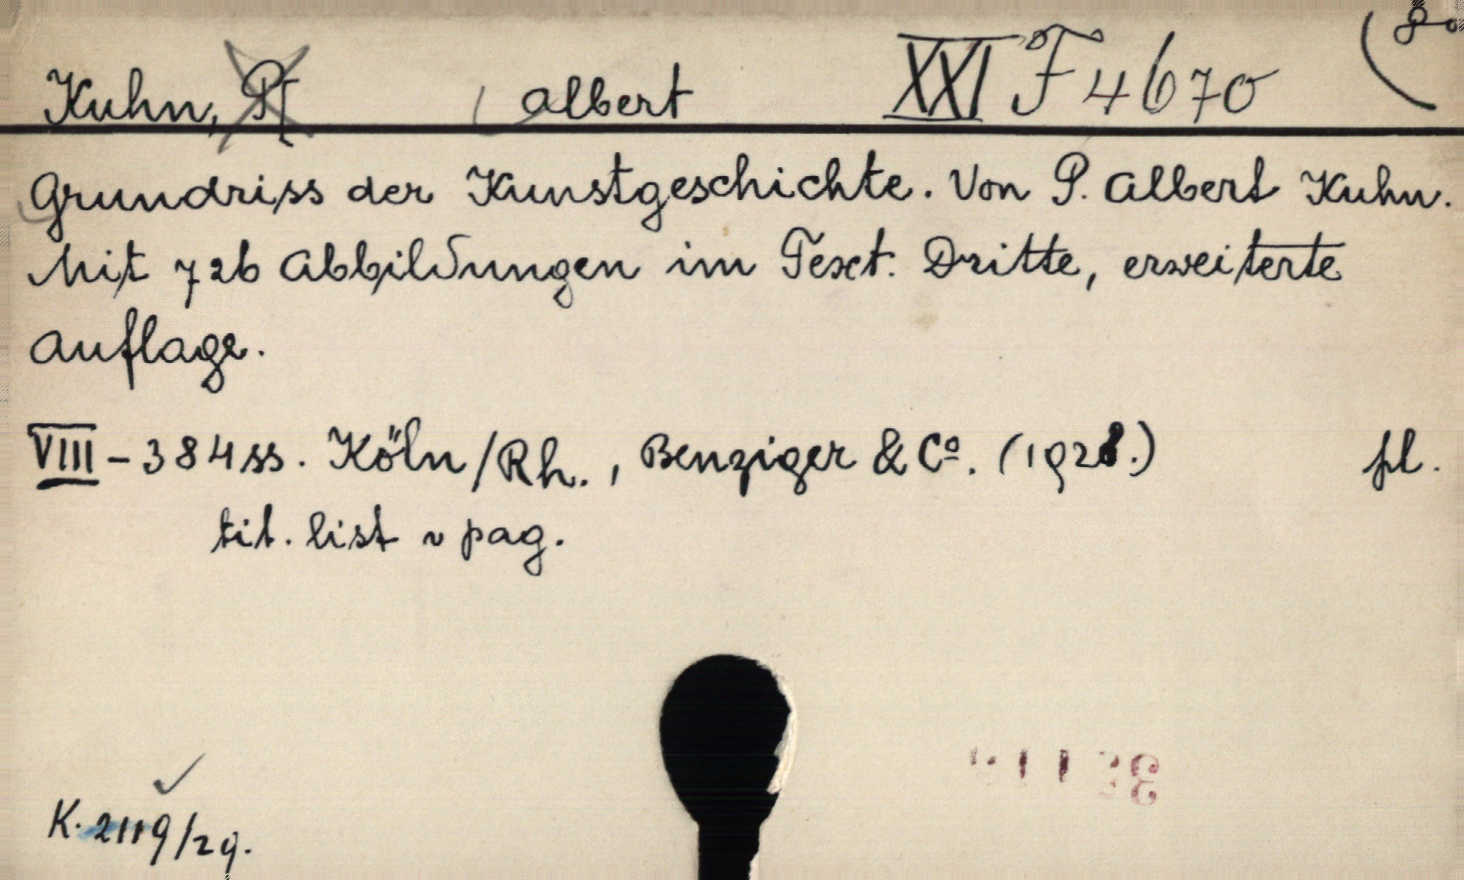 Kuhn, P[ Albert XXI F 4670 (80
Grundriss der Kunstgeschichte. Von P. Albert Kuhn.
Mit 726 Abbildungen im Text. Dritte, erweiterte
Auflage.
VIII-384 ss. Köln/Rh., Benziger & Cº. (1928.) pl.
tit. list v pag.
K. 2119/29.